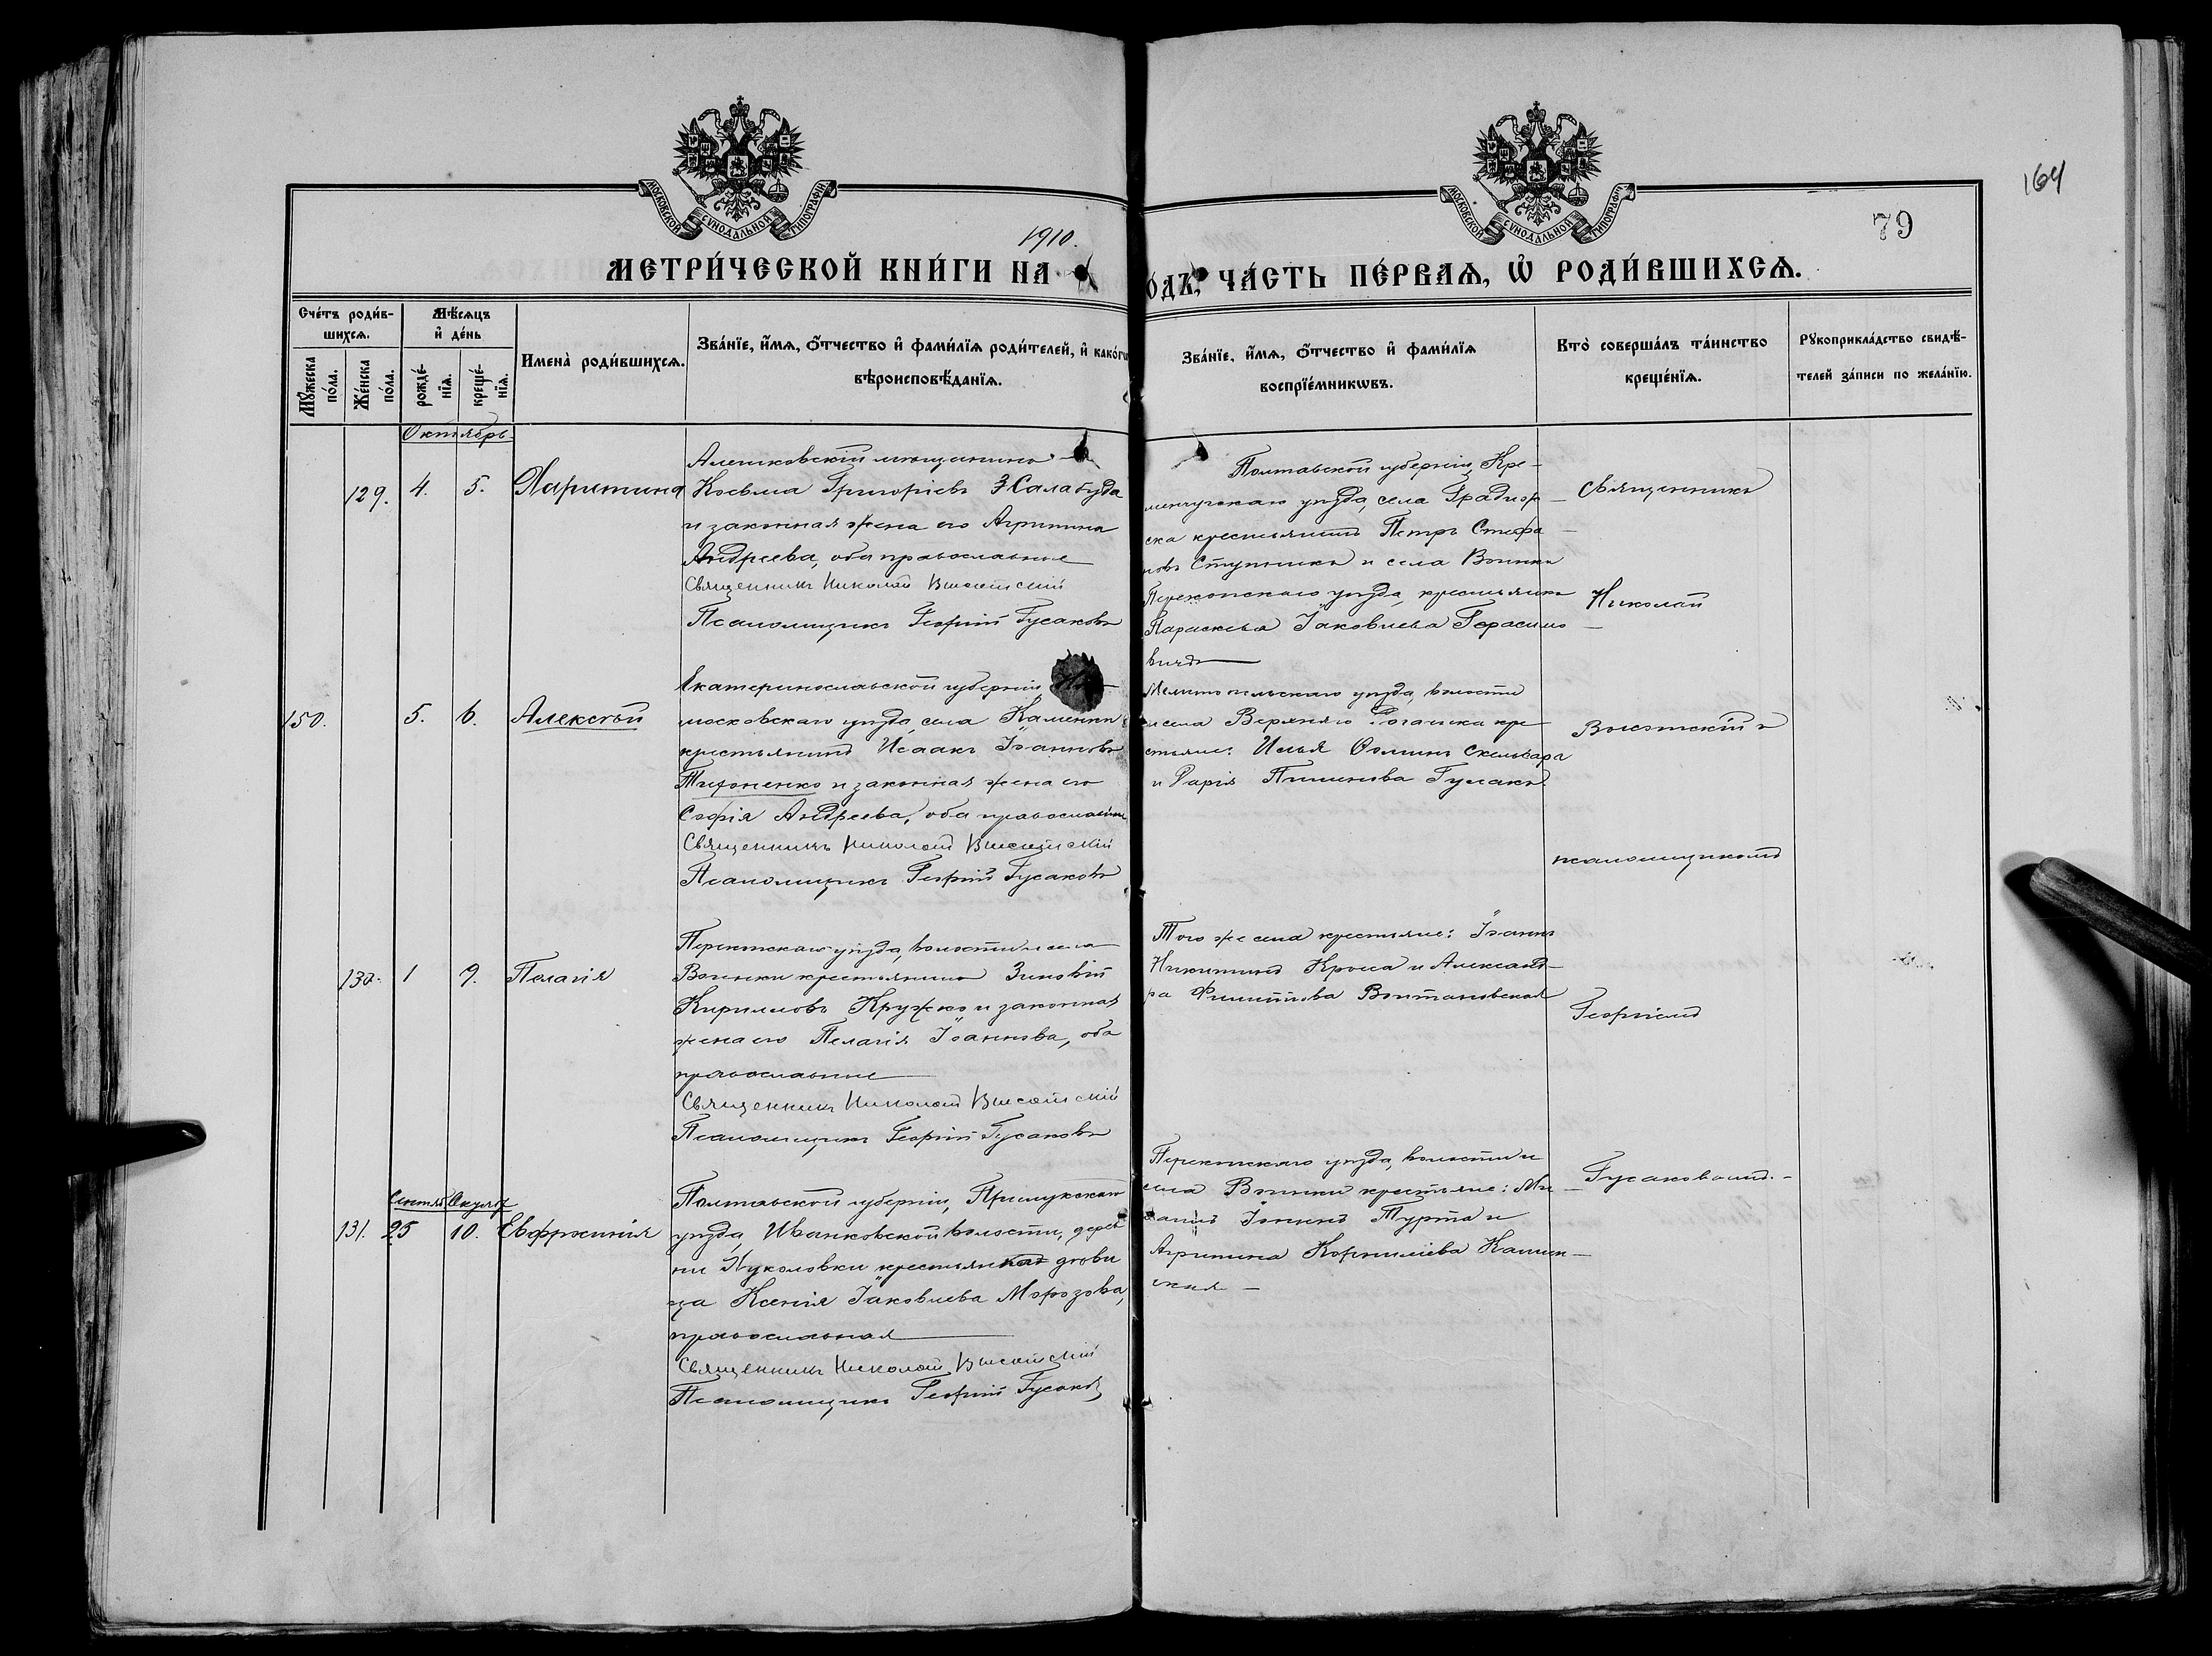 164
79
МОСКОВСКОЙ СѴНОДАЛЬНОЙ ТИПОГРАФІИ
МОСКОВСКОЙ СѴНОДАЛЬНОЙ ТИПОГРАФІИ
1910.
МЕТРИ́ЧЕСКОЙ КНИ́ГИ НА
О́ДЪ, ЧА́СТЬ ПЕ́РВАѦ, Ѡ҆ РОДИ́ВШИХСѦ.
Сче́тъ роди́в-
шихсѧ.
Мꙋ́жеска по́ла.
Же́нска по́ла.
Мѣ́сѧцъ
и҆ де́нь
рожде́-
нїѧ.
креще́-
нїѧ.
Имена̀ роди́вшихсѧ.
Зва́нїе, и҆́мѧ, ѻ҆́тчество и҆ фами́лїѧ роди́телей, и҆ како́гѡ
вѣроисповѣ́данїѧ.
Зва́нїе, и҆́мѧ, ѻ҆́тчество и҆ фами́лїѧ
воспрїе́мникѡвъ.
Кто̀ соверша́лъ та́инство
креще́нїѧ.
Рꙋкоприкла́дство свидѣ́-
телей за́писи по жела́нїю.
Октябрь
129. 4. 5. Харитина
Алешковскій мѣщанинъ
Косьма Григоріевъ Салабуда
и законная жена его Агрипина
Андреева, оба православные
Священникъ Николай Высотскій
Псаломщикъ Георгій Гусаковъ
Полтавской губерніи, Кре-
менчугскаго уѣзда, села Градиж-
ска крестьянинъ Петръ Стефа-
новъ Ступникъ и села Воинки
Перекопскаго уѣзда, крестьянка
Параскева Іаковлева Герасимо-
вичъ
Священникъ
Николай
150. 5. 6. Алексѣй
Екатеринославской губерніи,
московскаго уѣзда, села Каменки
крестьянинъ Исаакъ Іоанновъ
Тихоненко и законная жена его
Софія Андреева, оба православные
Священникъ Николай Высотскій
Псаломщикъ Георгій Гусаковъ
Мелитопольскаго уѣзда, волости
и села Верхняго Рогачика кре-
стьяне: Илья Ѳоминъ
и Дарія Пименова Гулакъ.
Высотскій съ
псаломщикомъ
130. 1 9. Пелагія
Перекопскаго уѣзда, волости и села
Воинки крестьянинъ Зиновій
Кирилловъ Кружко и законная
жена его Пелагія Іоаннова, оба
православные
Священникъ Николай Высотскій
Псаломщикъ Георгій Гусаковъ
Того же села крестьяне: Іоаннъ
Никитинъ и Александ-
ра Филиппова Войтановская
Георгіемъ
Сентяб. Октяб.
131. 25 10. Евфросинія
Полтавской губерніи, Прилукскаго
уѣзда, Иванковской волости, дерев-
ни крестьянка дѣви
ца Ксенія Іаковлева Морозова,
православная
Священникъ Николай Высотскій
Псаломщикъ Георгій Гусаковъ
Перекопскаго уѣзда, волости и
села Воинки крестьяне: Ми-
хаилъ Іоннинъ Турта и
Агрипина Корнилієва Камин-
ская
Гусаковымъ.